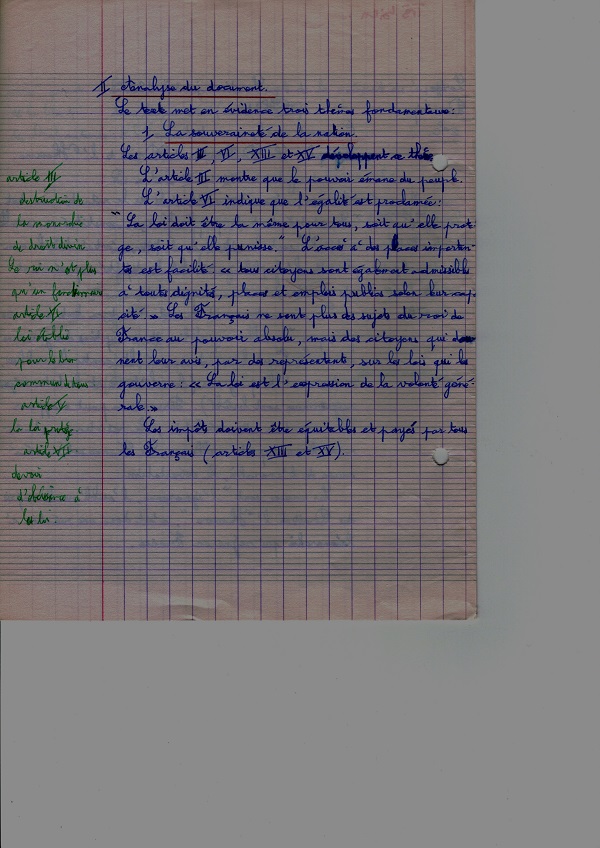 II Analyse du document.
Le texte met en évidence trois thèmes fondamentaux :
1. La souveraineté de la nation.
Les articles III, VI, XIII et XV développent ce
L'article III montre que le pouvoir émane du peuple.
L'article VI indique que l'égalité est proclamée :
" La loi doit être la même pour tous, soit qu'elle protè-
ge, soit qu'elle punisse. " L'accès à des places importan-
tes est facilité « tous citoyens sont également admissibles
à toute dignité, places et emplois publics selon leur capa-
cité » Les Français ne sont plus des sujets du roi de
France au pouvoir absolu, mais des citoyens qui don-
nent leur avis, par des représentants, sur les lois qui les
gouverne : « La loi est l'expression de la volonté géné-
rale. »
Les impôts doivent être équitables et payés par tous
les Français (articles XIII et XV).
article III
destruction de
la monarchie
de droit divin
Le roi n'est plus
qu'un fonctionnaire
article VI
loi établie
pour le bien
commun de tous
article V
la loi protège
article VII
devoir
d'obéissance à
les loi.